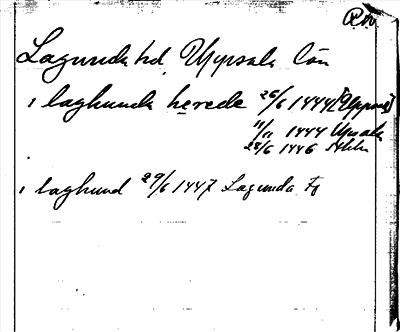 RA
Lagunda hd, Uppsala län
i laghunda herede 26/6 1444 [Uppsala]
11/11 1444 Upsala
28/6 1446
i laghund 29/6 1447 Lagunda Fj